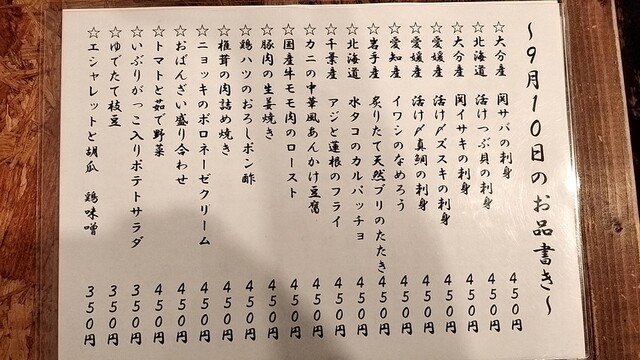 ～9月10日のお品書き～
☆大分産 関サバの刺身 450円
☆北海道 活けつぶ貝の刺身 450円
☆大分産 関イサキの刺身 450円
☆愛媛産 活け〆スズキの刺身 450円
☆愛媛産 活け〆真鯛の刺身 450円
☆愛知産 イワシのなめろう 450円
☆岩手産 炙りたて天然ブリのたたき 450円
☆北海道 水タコのカルパッチョ 450円
☆千葉産 アジと蓮根のフライ 450円
☆カニの中華風あんかけ豆腐 450円
☆国産牛モモ肉のロースト 450円
☆豚肉の生姜焼き 450円
☆鶏ハツのおろしポン酢 450円
☆椎茸の肉詰め焼き 450円
☆ニョッキのボロネーゼクリーム 450円
☆おばんざい盛り合わせ 450円
☆トマトと茹で野菜 450円
☆いぶりがっこ入りポテトサラダ 350円
☆ゆでたて枝豆 350円
☆エシャレットと胡瓜 鶏味噌 350円